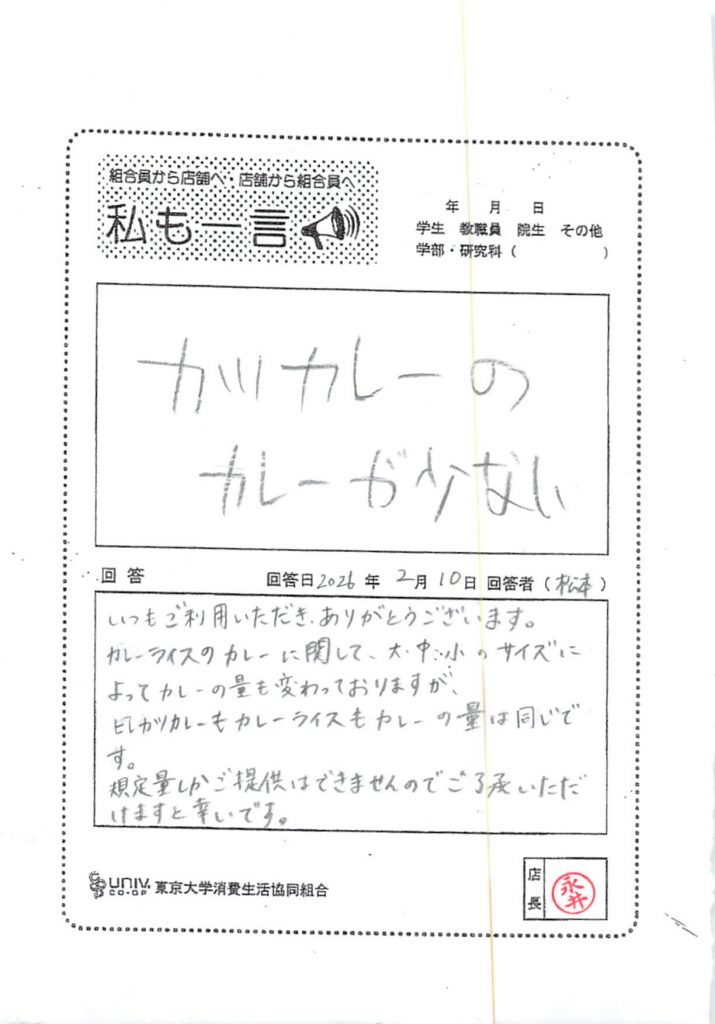 組合員から店舗へ・店舗から組合員へ
私も一言
年 月 日
学生 教職員 院生 その他
学部・研究科( )
カツカレーの
カレーが少ない
回答 回答日2026年2月10日 回答者(松本)
いつもご利用いただき、ありがとうございます。
カレーライスのカレーに関して、大・中・小のサイズに
よってカレーの量も変わっておりますが、
ヒレカツカレーもカレーライスもカレーの量は同じで
す。
規定量しかご提供はできませんのでご了承いただ
けますと幸いです。
UNIV. CO-OP 東京大学消費生活協同組合
店長
永井